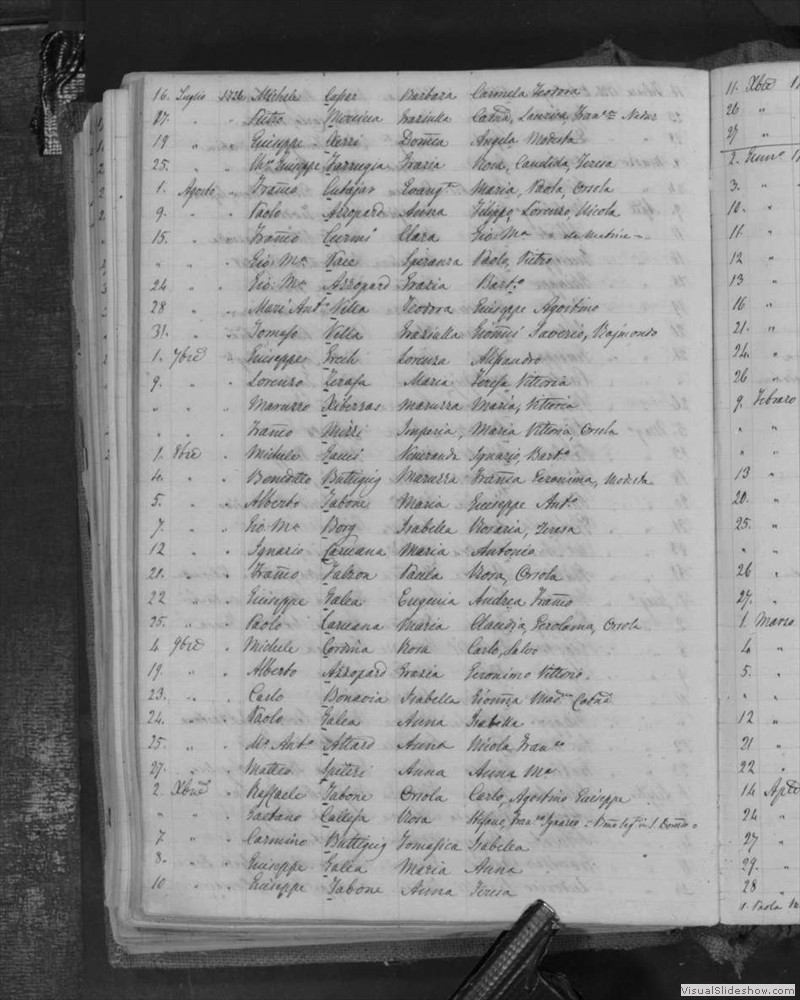 16. Luglio 1726 Michele Caper Barbara Carmela Teodora
27. " " Pietro Messina Graziulla
19 " " Giuseppe Xerri Domca Angela Modesta
25. " " Giuseppe Farrugia Grazia Rosa, Candida, Teresa
1. Agosto " Franco Cutajar Evang.ta Maria, Paola, Orsola
9. " " Paolo Azzopard Anna Filippo, Lorenzo, Nicola
15. " " Franco Curmi Clara Gio: Ma
" " " Gio: Ma Pace Speranza Paolo, Pietro
24 " " Gio: Ma Azzopard Grazia Barto
28 " " Mari' Anto Vella Teodora Giuseppe Agostino
31. " " Tomaso Vella Graziulla Saverio, Rajmondo
1. 7bre " Giuseppe Grech Lorenza Alessandro
9. " " Lorenzo Zerafa Maria Teresa Vittoria
" " " Maruzzo Xiberras Maruzza Maria, Vittoria
" " " Franco Mizzi Imperia, Maria Vittoria, Orsola
1. 8bre " Michele Gauci Veneranda Ignazio, Barto
4. " " Benedetto Buttigieg Maruzza Franca Geronima, Modesta
5. " " Alberto Tabone Maria Giuseppe Anto
7. " " Gio: Ma Borg Isabella Rosaria, Teresa
12 " " Ignazio Caruana Maria Antonio
21. " " Franco Falzon Paula Rosa, Orsola
22 " " Giuseppe Galea Eugenia Andrea Franco
25. " " Paolo Caruana Maria Claudia, Gerolama, Orsola
4 9bre " Michele Cordina Rosa Carlo, Salvo
19. " " Alberto Azzopard Grazia Geronimo Vittorio
23. " " Carlo Bonavia Isabella
24. " " Paolo Galea Anna Isabella
25. " " Ma Anto Attard Anna Nicola Franco
27. " " Matteo Spiteri Anna Anna Ma
2. Xbre " Raffaele Tabone Orsola Carlo, Agostino Giuseppe
" " " Gaetano Calleja Rosa
7 " " Carmino Buttigieg Tomasica Isabella
8. " " Giuseppe Galea Maria Anna
10 " " Giuseppe Tabone Anna Teresa
11. Xbre
26 "
27 "
2.
3. "
10. "
11. "
12 "
13 "
16 "
21. "
24. "
26 "
9. Febraro
" "
" "
13 "
20. "
25. "
" "
26 "
27. "
1. Marzo
4 "
5. "
" "
12 "
21 "
22 "
14
24 "
27 "
29. "
28 "
VisualSlideshow.com